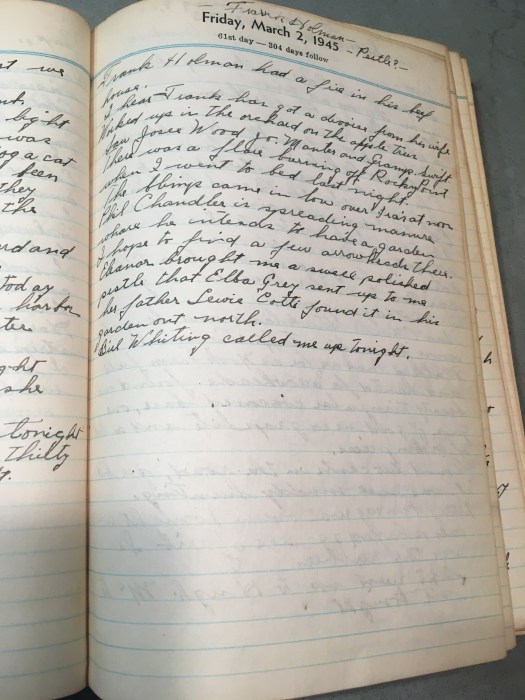 Frank Holman - Pestle? -
Friday, March 2, 1945
61st day — 304 days follow
Frank Holman had a fire in his
house.
I hear Frank has got a divorce from his wife
Worked up in the orchard on the apple trees
Saw Josie Wood Jo. Manter and Gramp. Swift
There was a flare burning off Rocky Point
when I went to bed last night.
The blimps came in low over at noon
Phil Chandler is spreading manure
where he intends to have a garden
I hope to find a few arrowheads there.
Eleanor brought me a small polished
pestle that Elba Grey sent up to me
her father Lewis Cotte found it in his
garden out north.
Bill Whiting called me up tonight.
t we
nt.
light
was
og a cat
been
they
the
rd and
today
harbor
ter
ght
she
tonight
thilly
t.